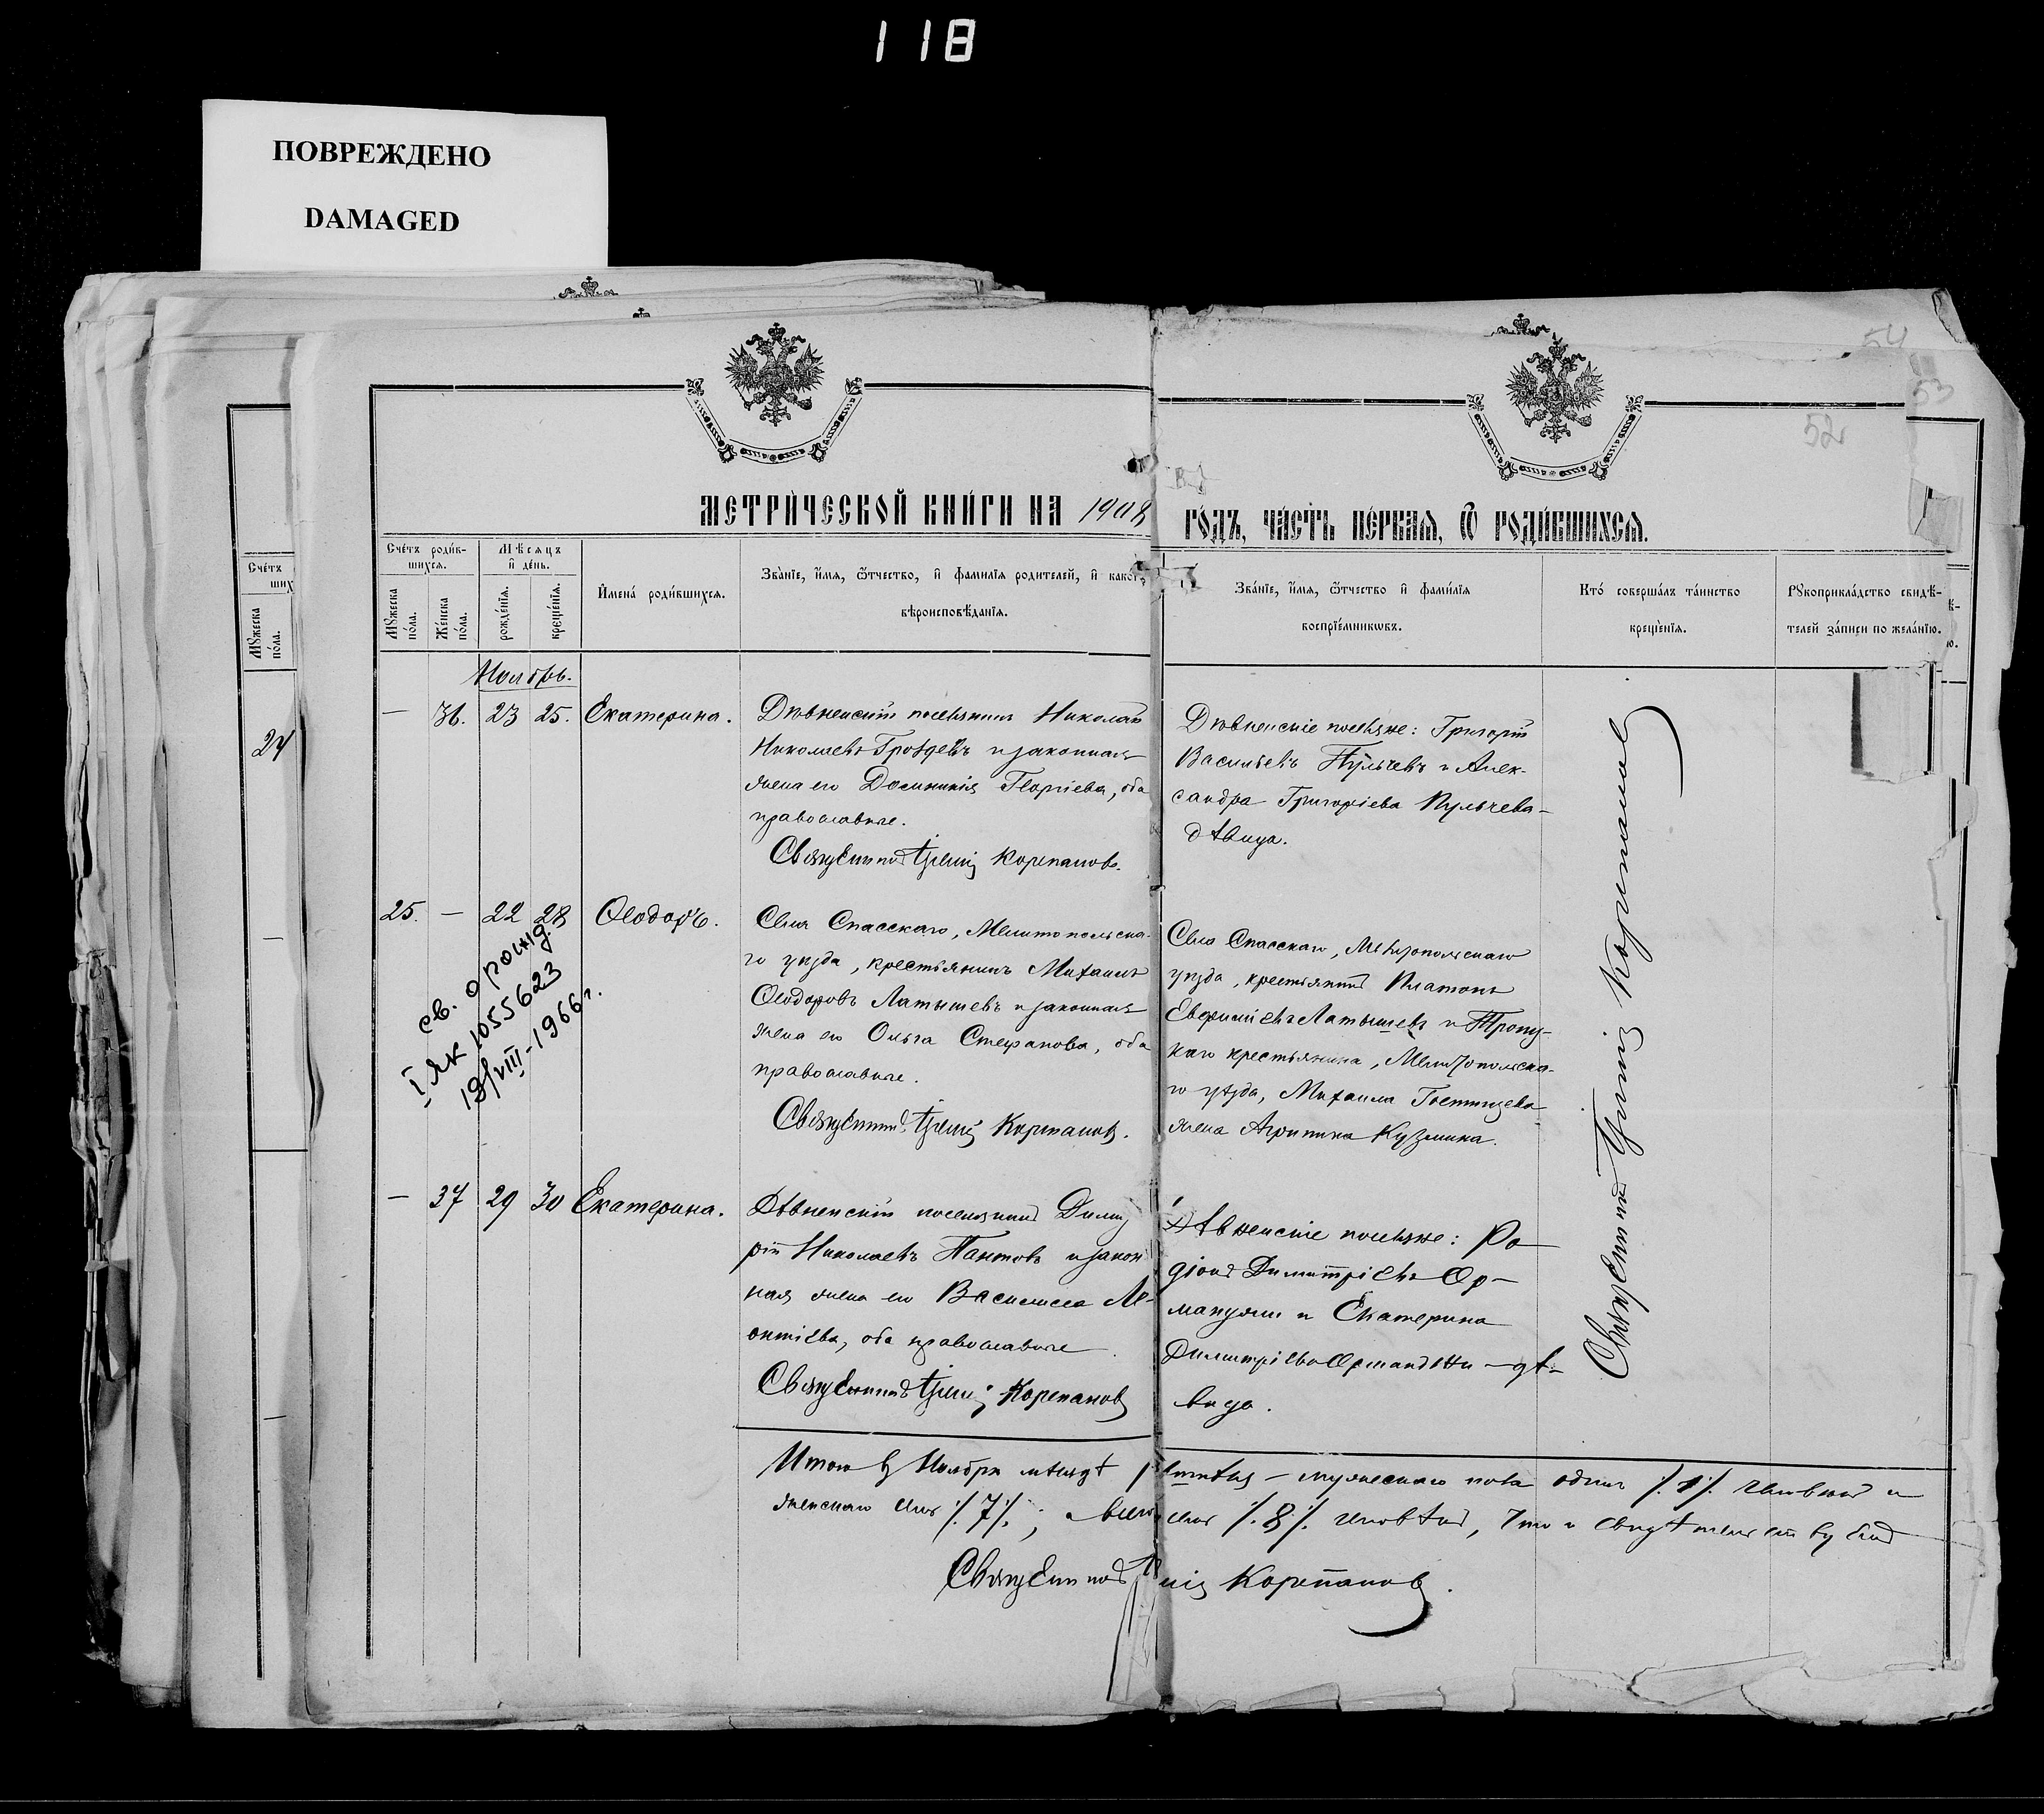 118
ПОВРЕЖДЕНО
DAMAGED
54
53
52
МЕТРИ́ЧЕСКОЙ КНИ́ГИ НА 1908
ГО́ДЪ, ЧА́СТЬ ПЕ́РВАЯ, Ѿ РОДИ́ВШИХСЯ.
Сче́тъ
ших
Мꙋжеска по́ла.
24
Сче́тъ роди́в-
шихся.
Мꙋжеска по́ла.
Же́нска по́ла.
Мѣ́сяцъ
и де́нь.
рожде́нїя.
креще́нїя.
Имена́ роди́вшихся.
Зва́нїе, и́мя, ѻ҆́тчество, и фами́лїя роди́телей, и како́г
вѣроисповѣ́данїя.
Зва́нїе, и́мя, ѻ҆́тчество и фами́лїя
воспрїе́мникѡвъ.
Кто́ соверша́лъ та́инство
креще́нїя.
Рꙋкоприкла́дство свидѣ́-
телей за́писи по жела́нїю.
Ноябрь.
— 36. 23 25. Екатерина.
Дѣвненскій поселянинъ Николай
Николаевъ Гроздевъ и законная
жена его Домникія Георгіева, оба
православные.
Священникъ Корепановъ.
Дѣвненскіе поселяне: Григорій
Васильевъ Пульчевъ и Алек-
сандра Григоріева Пульчева —
дѣвица.
25. — 22 28 Ѳеодоръ.
Села Спасскаго, Мелитопольска-
го уѣзда, крестьянинъ Михаилъ
Ѳеодоровъ Латышевъ и законная
жена его Ольга Стефанова, оба
православные.
Священникъ Корепановъ.
Села Спасскаго, Мелитопольскаго
уѣзда, крестьянинъ Платонъ
Евфиміевъ Латышевъ и
крестьянина, Мелитопольска-
го уѣзда, Михаила
жена Агрипина Кузмина.
св. о рожд.
I ЯК 1055623
19/VIII-1966 г.
— 37 29 30 Екатерина.
Дѣвненскій поселянинъ Дими
рій Николаевъ Пантовъ и закон
ная жена его Василисса Ле-
онтіева, оба православные.
Священникъ Корепановъ
Дѣвненскіе поселяне: Ро
діонъ Димитріевъ Ор-
манджи и Екатерина
Димитріева Орманджи — дѣ-
вица.
Священникъ Корепановъ
Итого въ Ноябрѣ мѣсяцѣ мужескаго пола одинъ /.1/. человѣкъ и
женскаго семь /.7/.; /.8/. человѣкъ, что и свидѣтельствуемъ
Священникъ Корепановъ.